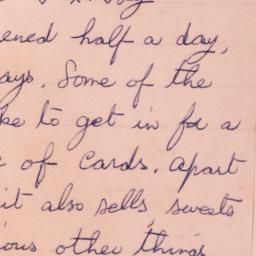 ened half a day,
ays. Some of the
ke to get in for a
of Cards. apart
it also sells, sweets
ious other things